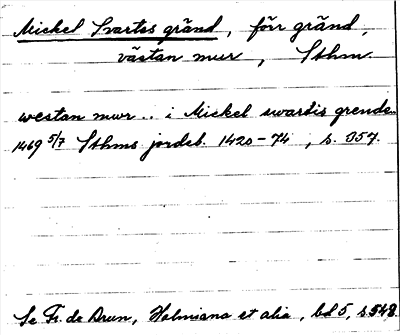 Mickel Svartes gränd, förr gränd,
västan mur, Sthm.
westan mwr .. i Mickel swartis grende..
1469 5/7 Sthms jordeb. 1420-74, s. 357.
Se Fr. de Brun, Holmiana et alia, bd 5, s 548.